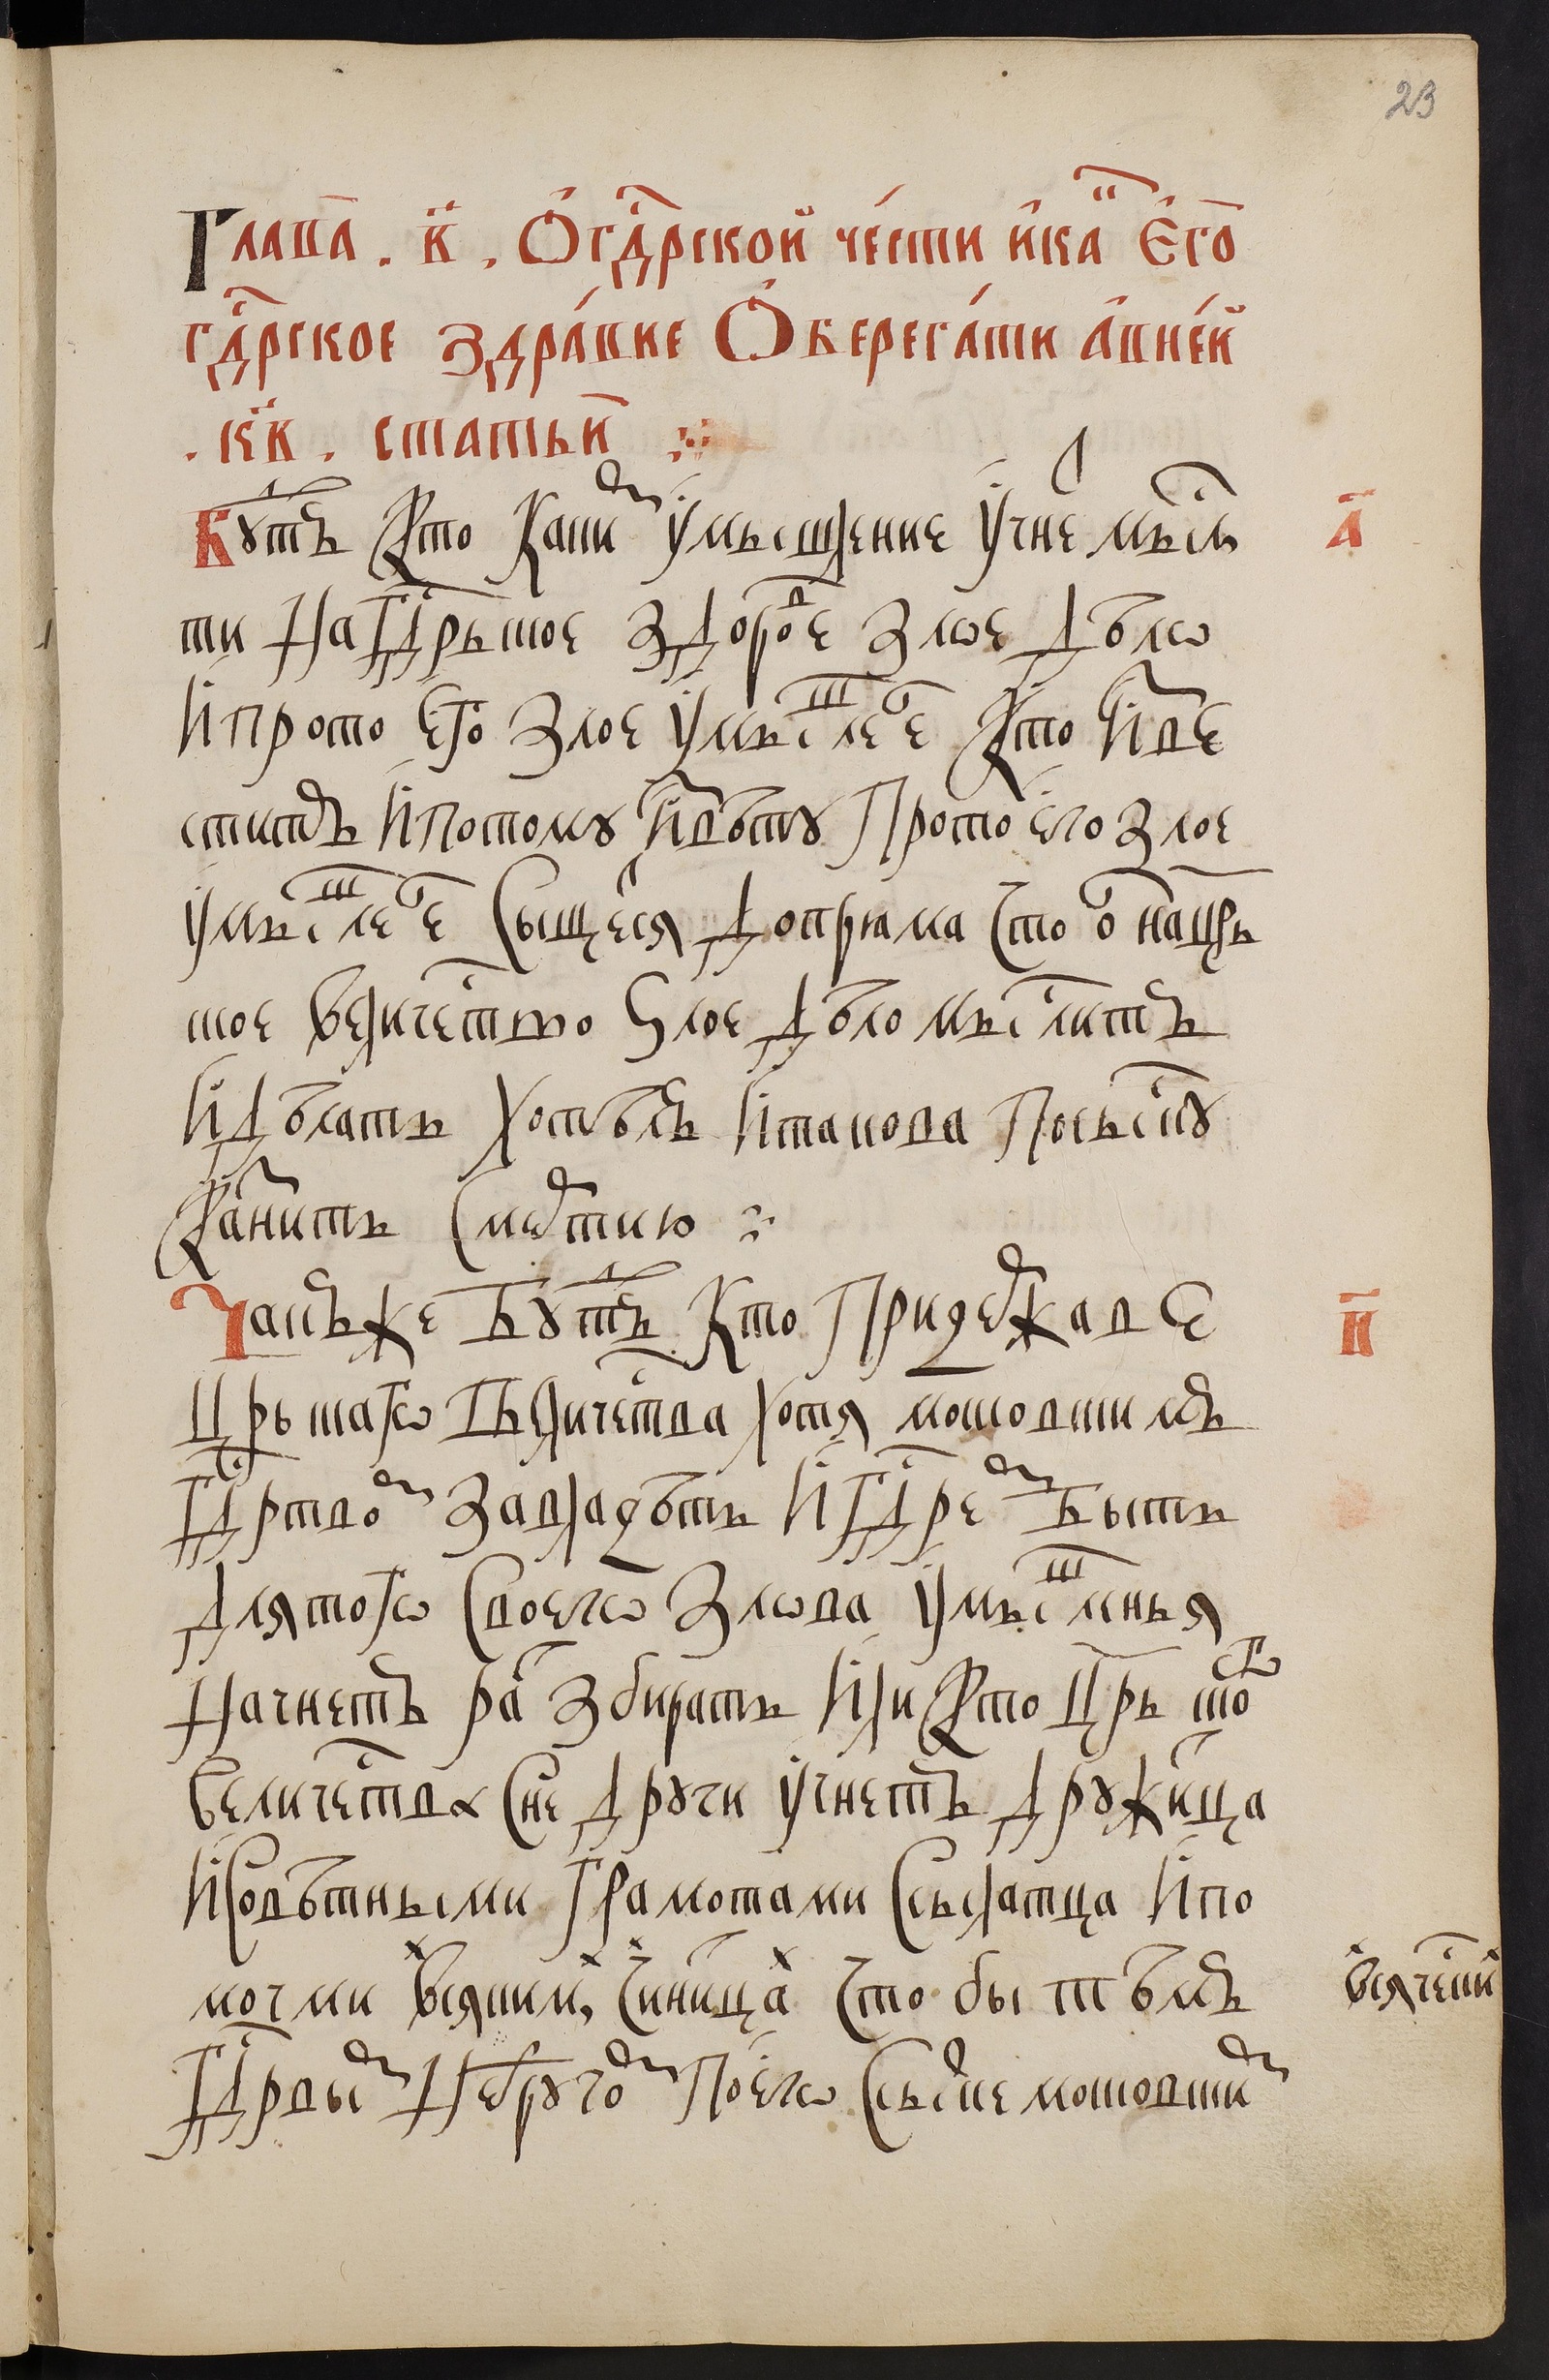 23
Глава . в҃ . О гдⷭ҇рской чести и каⷦ҇ Его
гдⷭ҇рское здравие Оберегати а в ней
. к҃в . статьи
Бꙋдетъ Кто Какиⷨ Умышлениеⷨ Учнеⷮ мысли
ти На Гдⷭ҇рьское Здороⷡе Злое Дѣло
И про то Его Злое Умыⷲлеⷩ҇е Кто Извѣ
ститъ И По томꙋ Извѣтꙋ Про то его Злое
Умыⷲлеⷩ҇е Сыщеⷮся Допряма Что оⷩ на цр҃ь
ское Величество Злое Дѣло мыслитъ
И Дѣлать Хотѣлъ И такова По сыскꙋ
Каⷥнить Смеⷬтию
Такъже Бꙋдетъ Кто При державе
Цр҃ьскаго Величества Хотя московскимъ
Гдⷭ҇рствоⷨ Завладѣть И Гдⷭ҇реⷨ Быть
Для того Своего Злова Умыⷲленья
Начнетъ раⷮ Збирать Или Кто Цр҃ьскоⷢ
Величества С не Дрꙋги Учнетъ Дрꙋжитца
И Совѣтными Грамотами Ссылатца И по
мочь ими Всякими, Чинить Что бы тѣмъ
всячески
Гдⷭ҇рвыⷨ Недрꙋгоⷨ По его Ссылке московскиⷨ
а҃
в҃